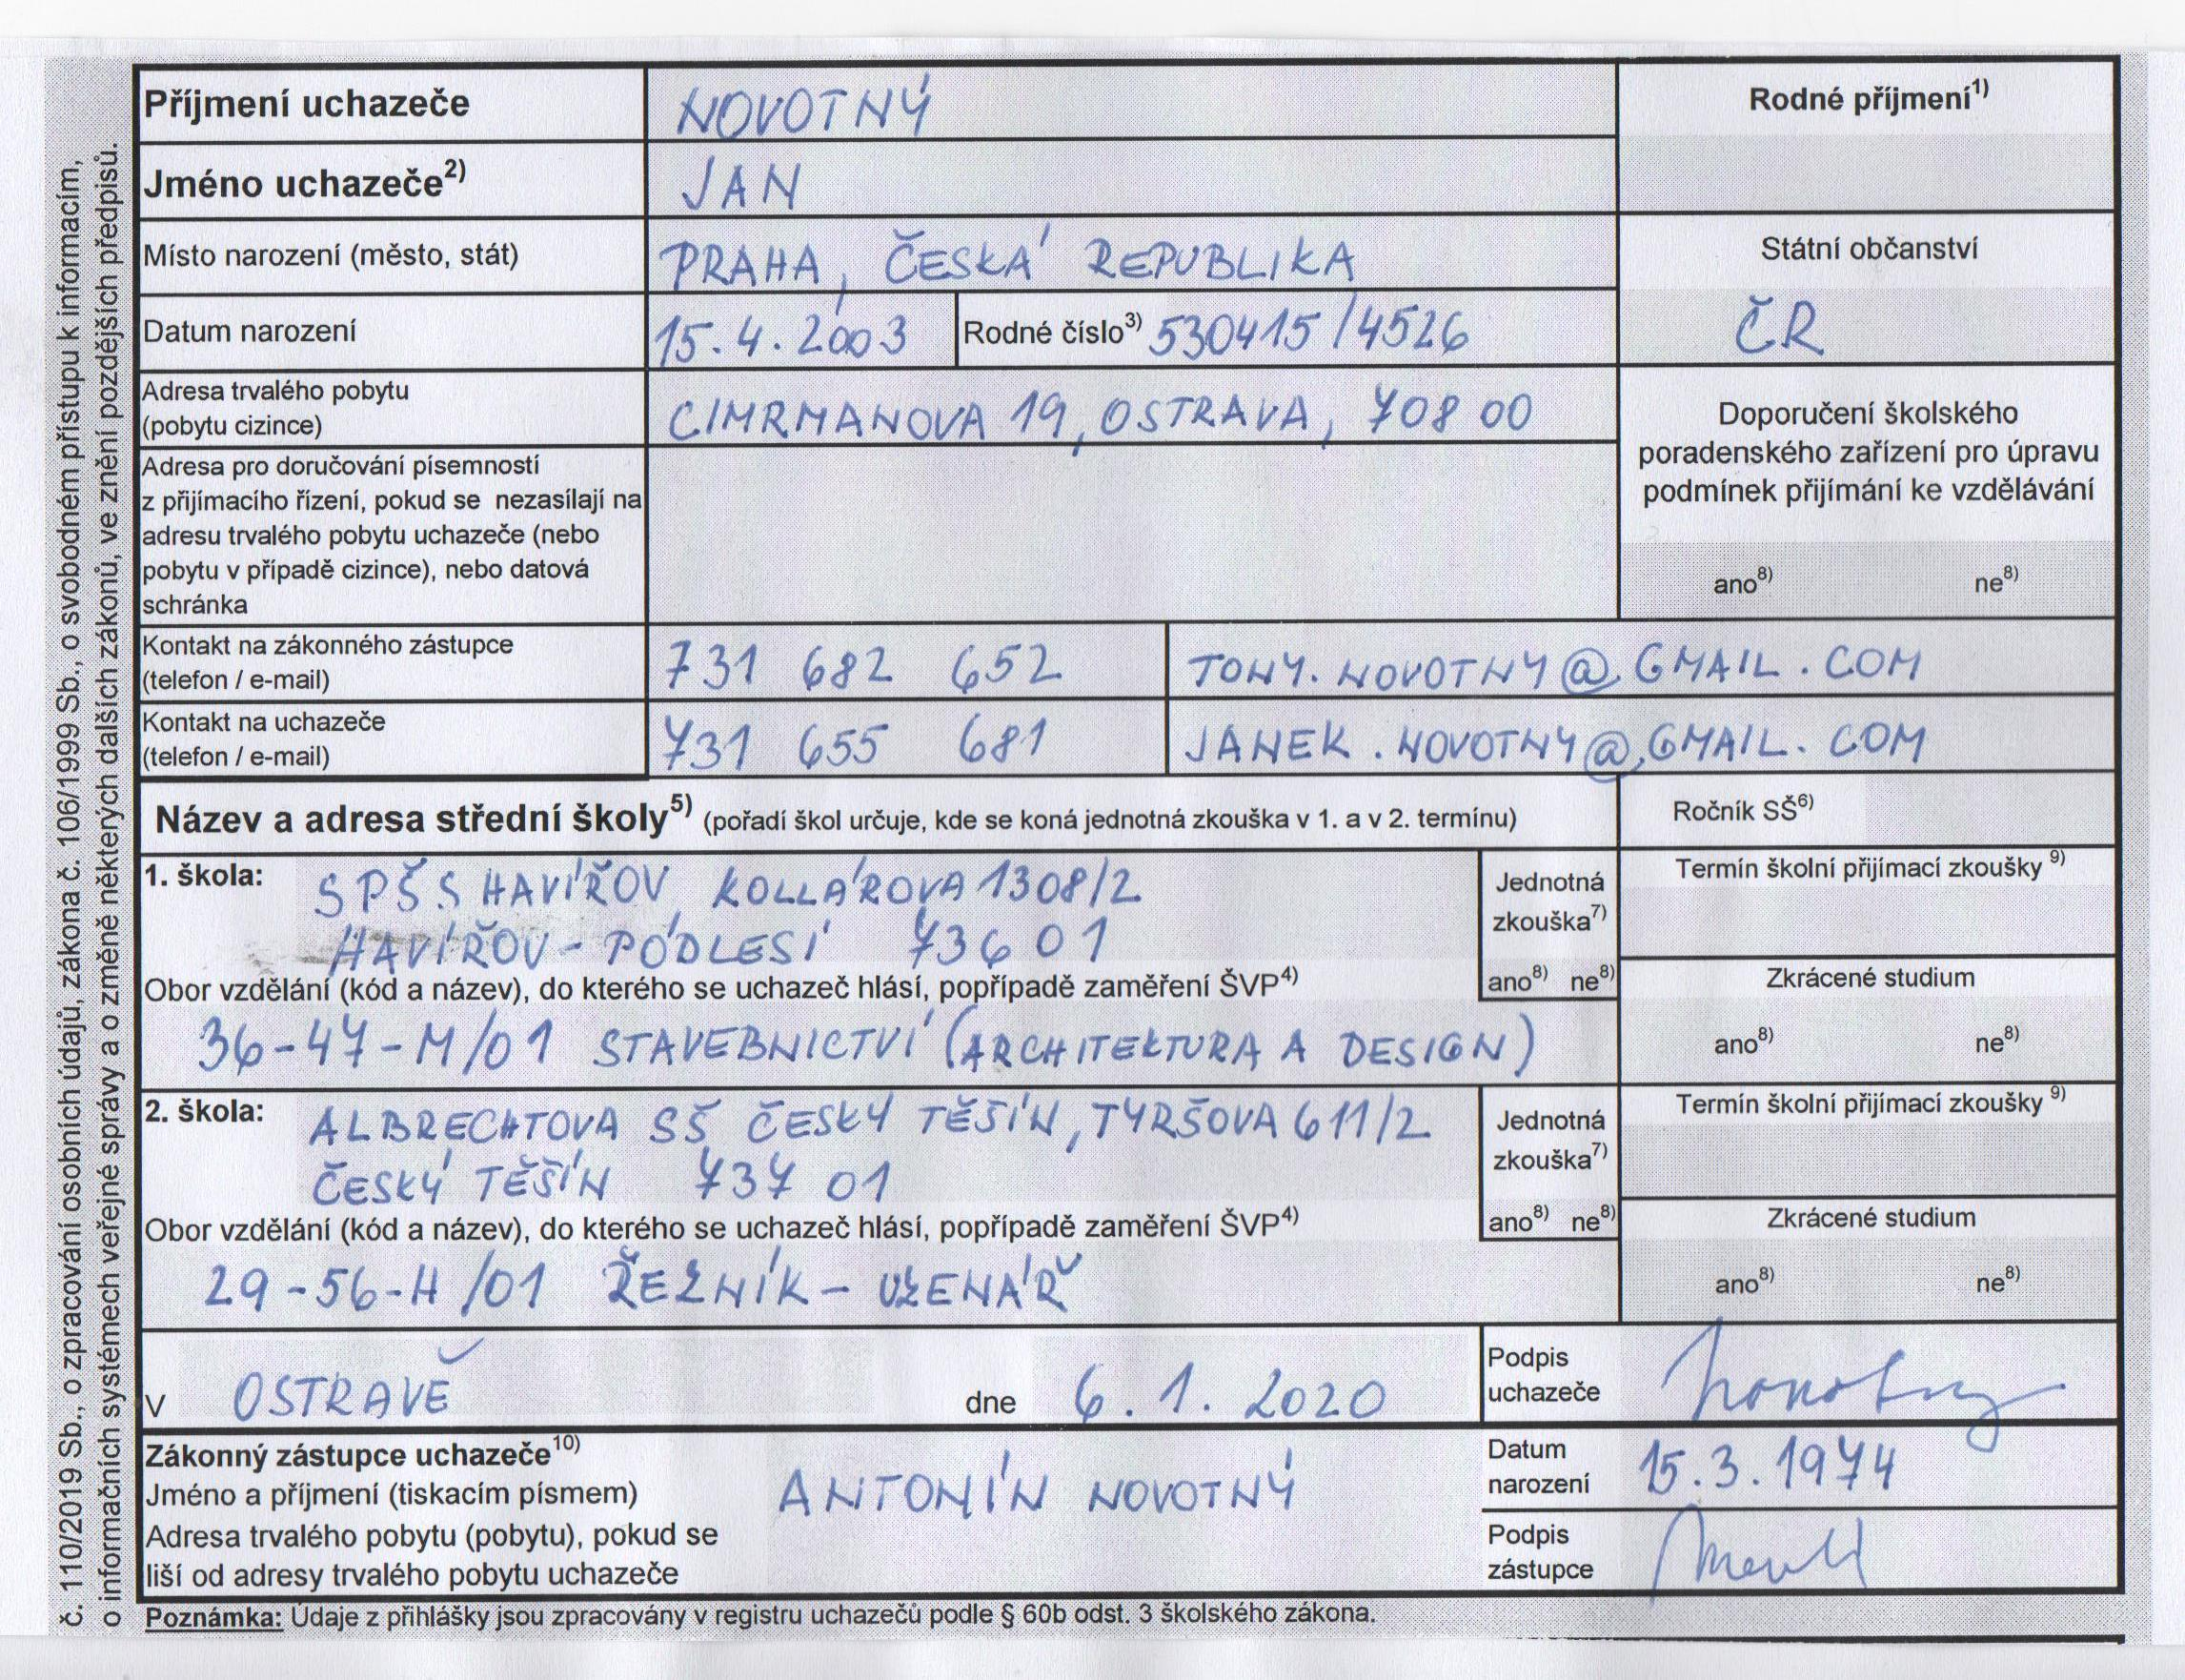 č. 110/2019 Sb., o zpracování osobních údajů, zákona č. 106/1999 Sb., o svobodném přístupu k informacím,
o informačních systémech veřejné správy a o změně některých dalších zákonů, ve znění pozdějších předpisů.
Příjmení uchazeče NOVOTNÝ Rodné příjmení1)
Jméno uchazeče2) JAN
Místo narození (město, stát) PRAHA, ČESKÁ REPUBLIKA Státní občanství
Datum narození 15.4.2003 Rodné číslo3) 530415/4526 ČR
Adresa trvalého pobytu
(pobytu cizince) CIMRMANOVA 19, OSTRAVA, 708 00
Doporučení školského
poradenského zařízení pro úpravu
podmínek přijímání ke vzdělávání
ano8) ne8)
Adresa pro doručování písemností
z přijímacího řízení, pokud se nezasílají na
adresu trvalého pobytu uchazeče (nebo
pobytu v případě cizince), nebo datová
schránka
Kontakt na zákonného zástupce
(telefon / e-mail) 731 682 652 TONY.NOVOTNY@GMAIL.COM
Kontakt na uchazeče
(telefon / e-mail) 731 655 681 JANEK.NOVOTNY@GMAIL.COM
Název a adresa střední školy5) (pořadí škol určuje, kde se koná jednotná zkouška v 1. a v 2. termínu) Ročník SŠ6)
1. škola: SPŠS HAVÍŘOV KOLLÁROVA 1308/2
HAVÍŘOV - PODLESÍ 736 01
Jednotná
zkouška7)
ano8) ne8)
Termín školní přijímací zkoušky 9)
Obor vzdělání (kód a název), do kterého se uchazeč hlásí, popřípadě zaměření ŠVP4)
Zkrácené studium
36-47-M/01 STAVEBNICTVÍ (ARCHITEKTURA A DESIGN)
ano8) ne8)
2. škola: ALBRECHTOVA SŠ ČESKÝ TĚŠÍN, TYRŠOVA 611/2
ČESKÝ TĚŠÍN 737 01
Jednotná
zkouška7)
ano8) ne8)
Termín školní přijímací zkoušky 9)
Obor vzdělání (kód a název), do kterého se uchazeč hlásí, popřípadě zaměření ŠVP4)
Zkrácené studium
29-56-H/01 ŘEZNÍK - UZENÁŘ
ano8) ne8)
V OSTRAVĚ dne 6.1.2020
Podpis
uchazeče Novotny
Zákonný zástupce uchazeče10)
Jméno a příjmení (tiskacím písmem) ANTONÍN NOVOTNÝ
Datum
narození 15.3.1974
Adresa trvalého pobytu (pobytu), pokud se
liší od adresy trvalého pobytu uchazeče
Podpis
zástupce
Poznámka: Údaje z přihlášky jsou zpracovány v registru uchazečů podle § 60b odst. 3 školského zákona.